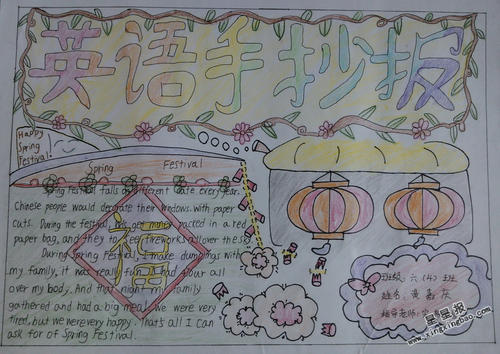 英语手抄报
Happy
Spring
Festival!
Spring Festival
Spring Festival falls on different date every year.
Chinese people would decorate their windows with paper
cuts. During the festival, get money packed in a red
paper bag, and they to see fireworks all over the sky
During Spring Festival, I make dumplings with
my family, it was really fun. I had flour all
over my body. And that night my family
gathered and had a big meal. We were very
tired, but we were very happy. That's all I can
ask for of Spring Festival.
福
班级: 六(4)班
姓名: 黄嘉
指导老师:
星星报
www.xingxingbao.com